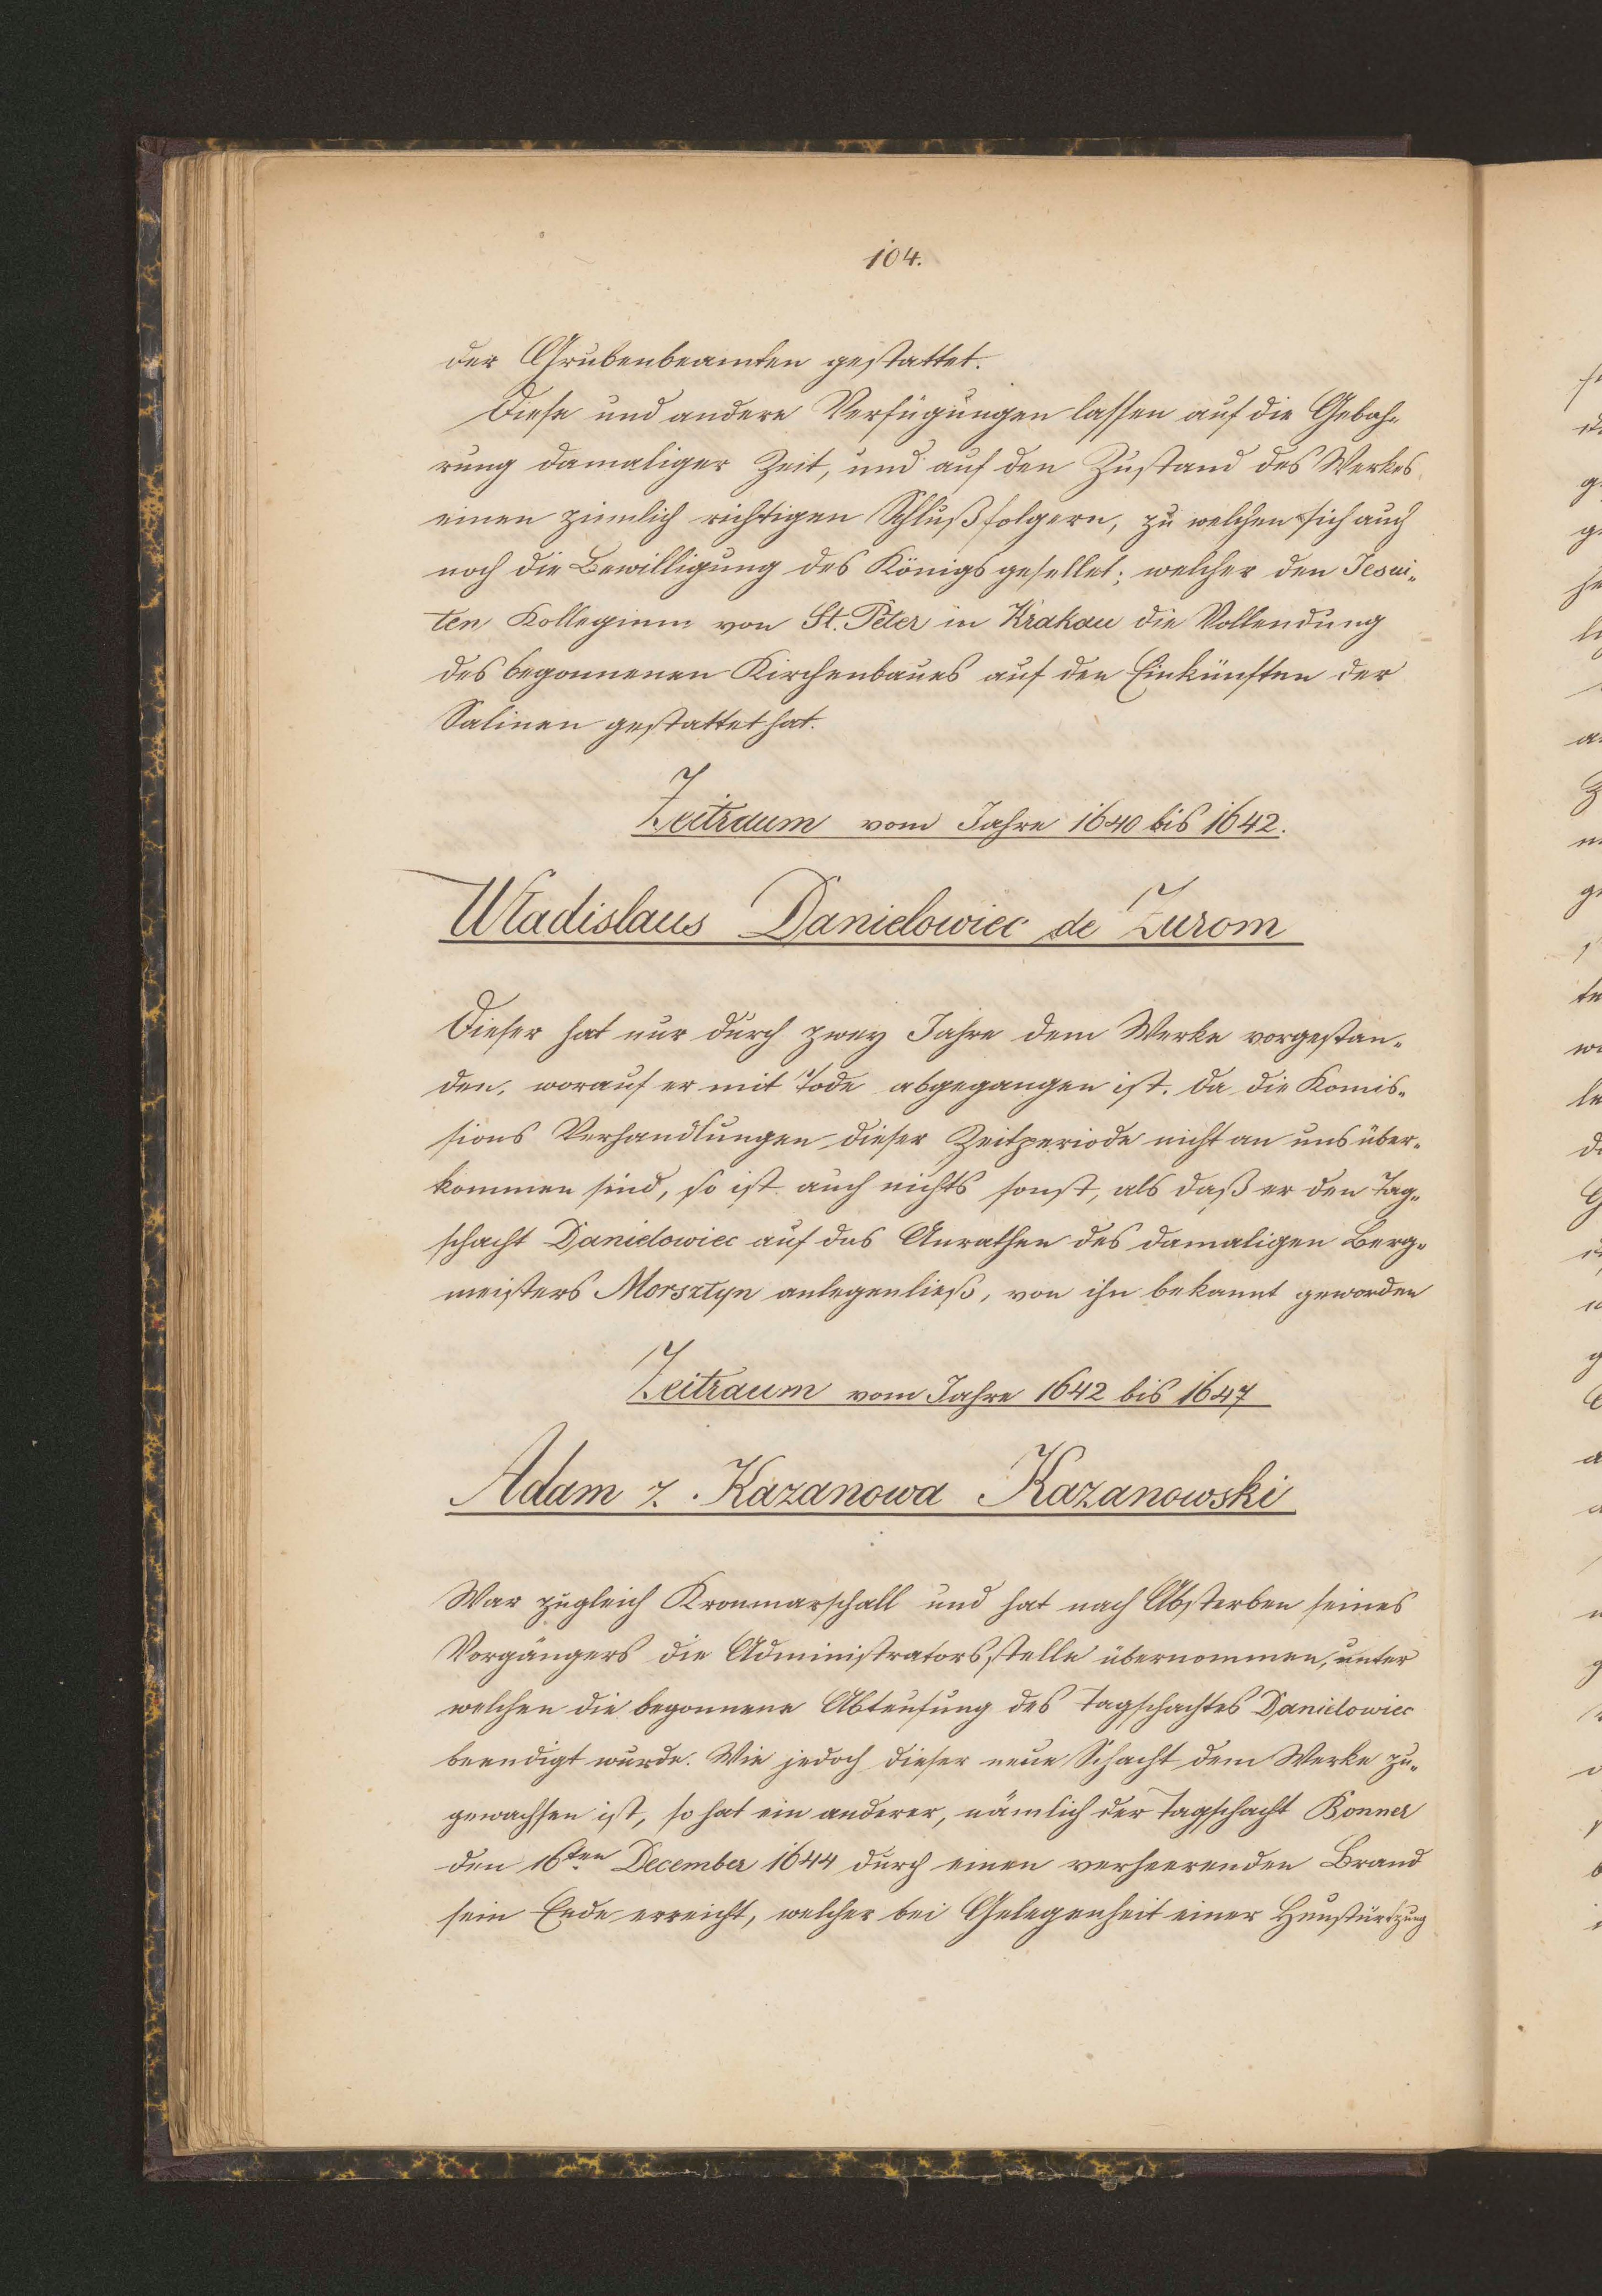 104.
der Grubenbeamten gestattet.
Diese und andere Verfügungen lassen auf die Gebah-
rung damaliger Zeit, und auf den Zustand des Werkes
einen ziemlich richtigen Schluß folgern, zu welchen sich auch
noch die Bewilligung des Königs gesellet; welcher den Jesui-
ten Kollegium von St. Peter in Krakau die Vollendung
des begonnenen Kirchenbaues auf den Einkünften der
Salinen gestattet hat.
Zeitraum vom Jahre 1640 bis 1642.
Wladislaus Danielowiec de Zurom
Dieser hat nur durch zwey Jahre dem Werke vorgestan-
den, worauf er mit Tode abgegangen ist. Da die Komis-
sions Verhandlungen dieser Zeitperiode nicht an uns über-
kommen sind, so ist auch nichts sonst, als daß er den Tag-
schacht Danielowiec auf das Anrathen des damaligen Berg-
meisters Morsztyn anlegen ließ, von ihn bekannt geworden
Zeitraum vom Jahre 1642 bis 1647
Adam z. Kazanowa Kazanowski
War zugleich Kronmarschall und hat nach Absterben seines
Vorgängers die Administratorsstelle übernommen, unter
welchen die begonnene Abteufung des Tagschachtes Danielowiec
beendigt wurde. Wie jedoch dieser neue Schacht dem Werke zu-
gewachsen ist, so hat ein anderer, nämlich der Tagschacht Bonner
den 16ten December 1644 durch einen verheerenden Brand
sein Ende erreicht, welcher bei Gelegenheit einer